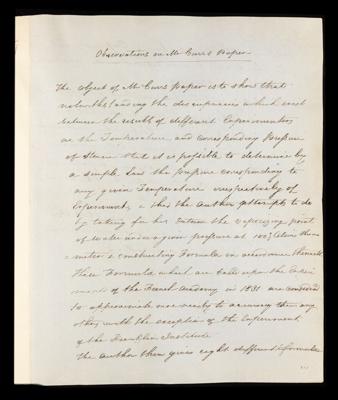 Observations on Mr Curr's Paper
The object of Mr Curr's paper is to show that
notwithstanding the discrepancies which exist
between the result of different Experimenters
on the Temperature and corresponding Pressure
of Steam that it is possible to determine by
a simple Law the pressure corresponding to
any given Temperature irrespectively of
Experiment, & this the author attempts to do
by taking for his datum the vaporizing point
of water under a given pressure at 100°
& constructing Formula in accordance therewith
These Formula which are based upon the Experi
ments of the French Academy in 1831 are considered
to approximate more nearly to accuracy than any
other with the exception of the Experiment
of the Franklin Institute
The author then gives eight different Formulae